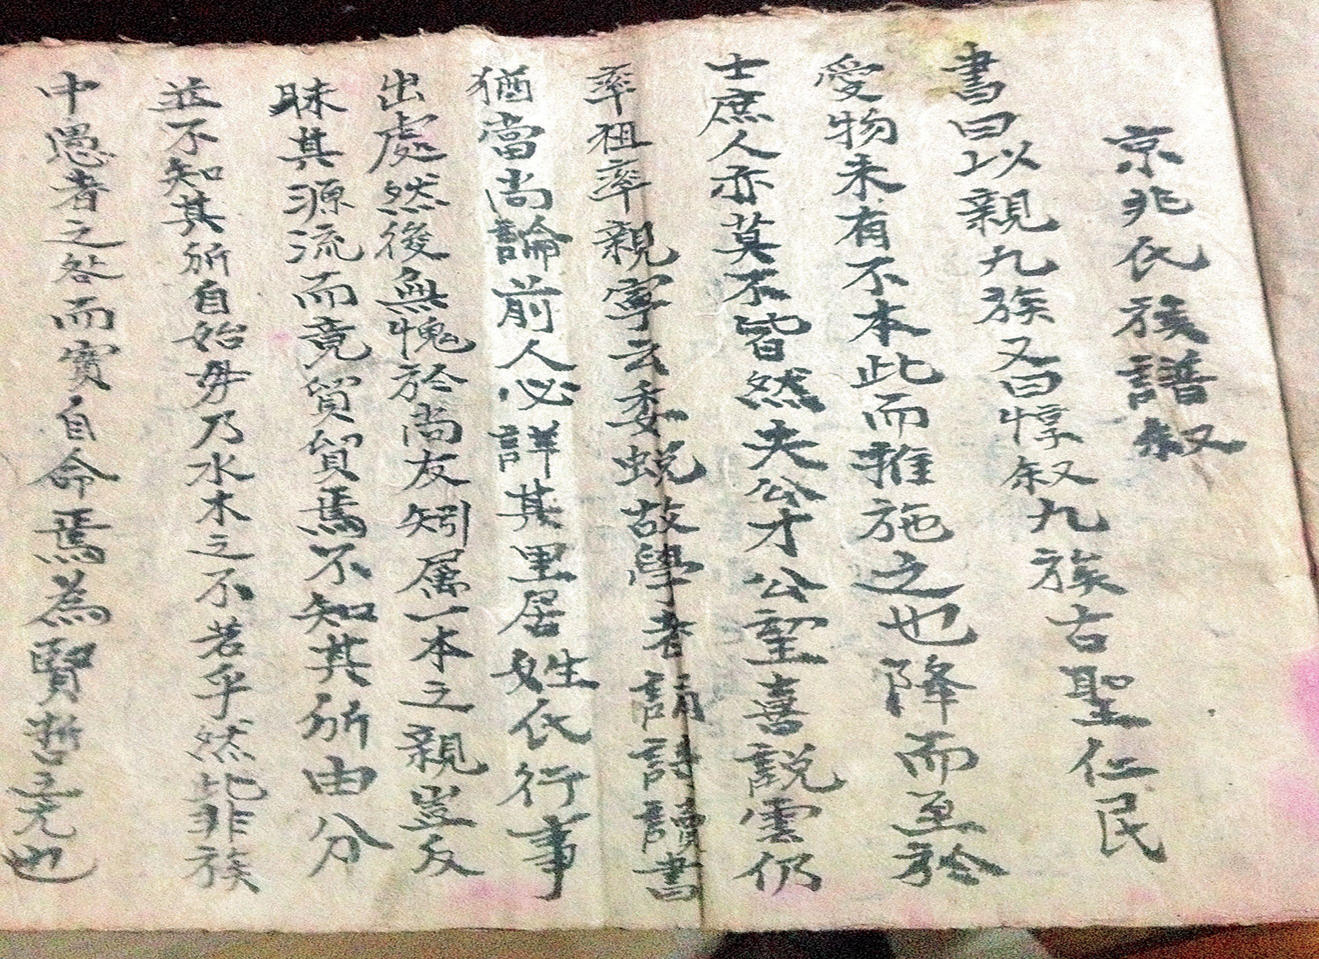 京兆氏族譜叙
書曰以親九族又曰惇叙九族古聖仁民
愛物未有不本此而推施之也降而至於
士庶人亦莫不皆然夫公才公望喜説雲仍
率祖率親寧云委蛻故學者誦詩讀書
猶當尚論前人必詳其里居姓氏行事
出處然後無愧於尚友矧属一本之親豈反
昧其源流而竟貿貿焉不知其所由分
並不知其所自始毋乃水木之不若乎然此非族
中愚者之咎而實自命焉為賢哲之也